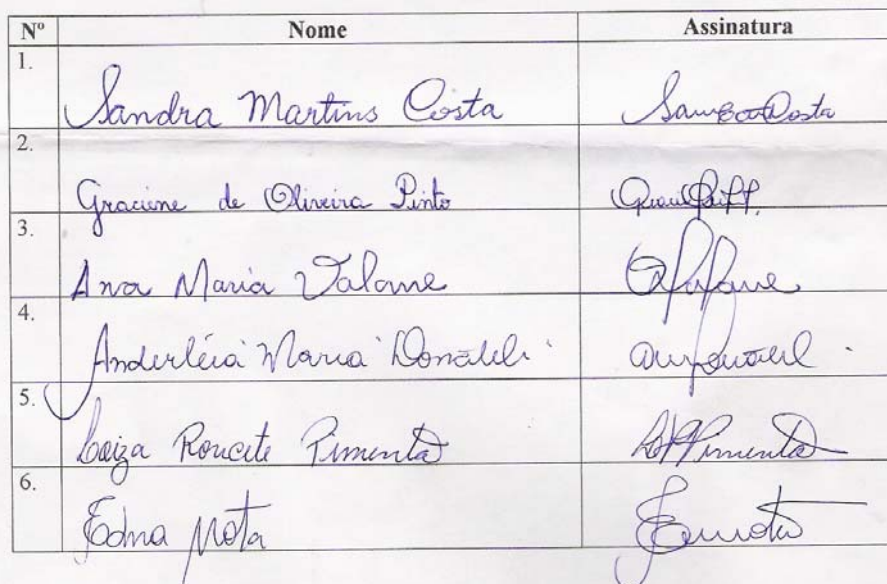 Nº Nome Assinatura
1. Sandra Martins Costa
2. Graciene de Oliveira Pinto
3. Ana Maria Valane
4. Anderléia Maria Donateli
5. Laiza Roncete Pimenta Pimenta
6. Edna Mota